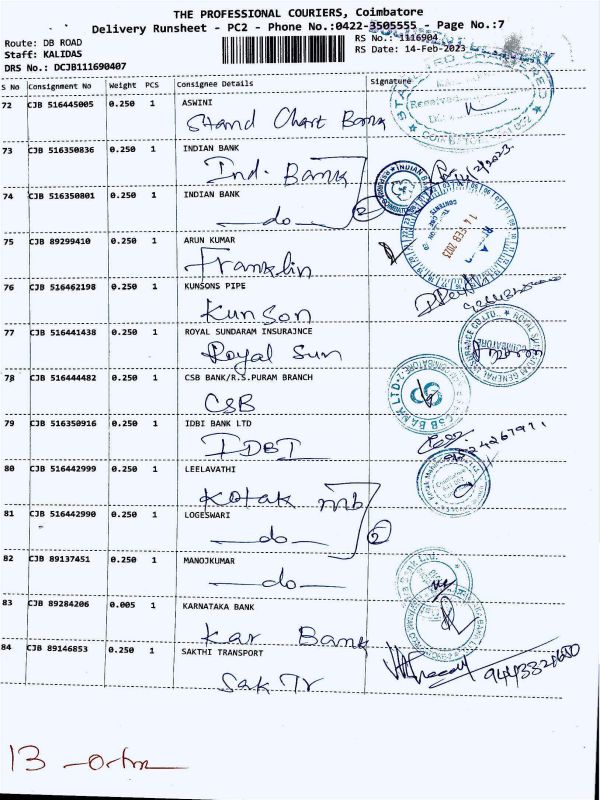 THE PROFESSIONAL COURIERS, Coimbatore
Delivery Runsheet - PC2 - Phone No.:0422-3505555 - Page No.:7
Route: DB ROAD
RS No.: 1116904
Staff: KALIDAS
RS Date: 14-Feb-2023
DRS No.: DCJB111690407
S No Consignment No Weight PCS Consignee Details Signature
72 CJB 516445005 0.250 1 ASWINI
Stand Chart Bank
73 CJB 516350836 0.250 1 INDIAN BANK
Ind. Bank
14/2/2023
74 CJB 516350801 0.250 1 INDIAN BANK
do 2
14 FEB 2023
75 CJB 89299410 0.250 1 ARUN KUMAR
Franklin
76 CJB 516462198 0.250 1 KUNSONS PIPE
Kunson
77 CJB 516441438 0.250 1 ROYAL SUNDARAM INSURAJNCE
Royal Sun
78 CJB 516444482 0.250 1 CSB BANK/R.S.PURAM BRANCH
CSB
79 CJB 516350916 0.250 1 IDBI BANK LTD
IDBI
80 CJB 516442999 0.250 1 LEELAVATHI
Kotak mb
81 CJB 516442990 0.250 1 LOGESWARI
do 2
82 CJB 89137451 0.250 1 MANOJKUMAR
do
83 CJB 89284206 0.005 1 KARNATAKA BANK
Kar Bank
84 CJB 89146853 0.250 1 SAKTHI TRANSPORT
Sak Tr
13